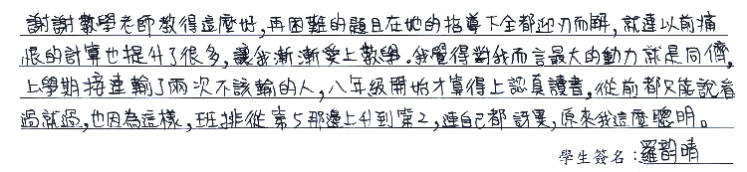 謝謝數學老師教得這麼好，再困難的題目在他的指導下全都迎刃而解，就連以前痛
恨的計算也提升了很多，讓我漸漸愛上數學。我覺得對我而言最大的動力就是同儕，
上學期接連輸了兩次不該輸的人，八年級開始才算得上認真讀書，從前都只能說看
過就過，也因為這樣，班排從第5那邊上升到第2，連自己都訝異，原來我這麼聰明。
學生簽名：羅韵晴